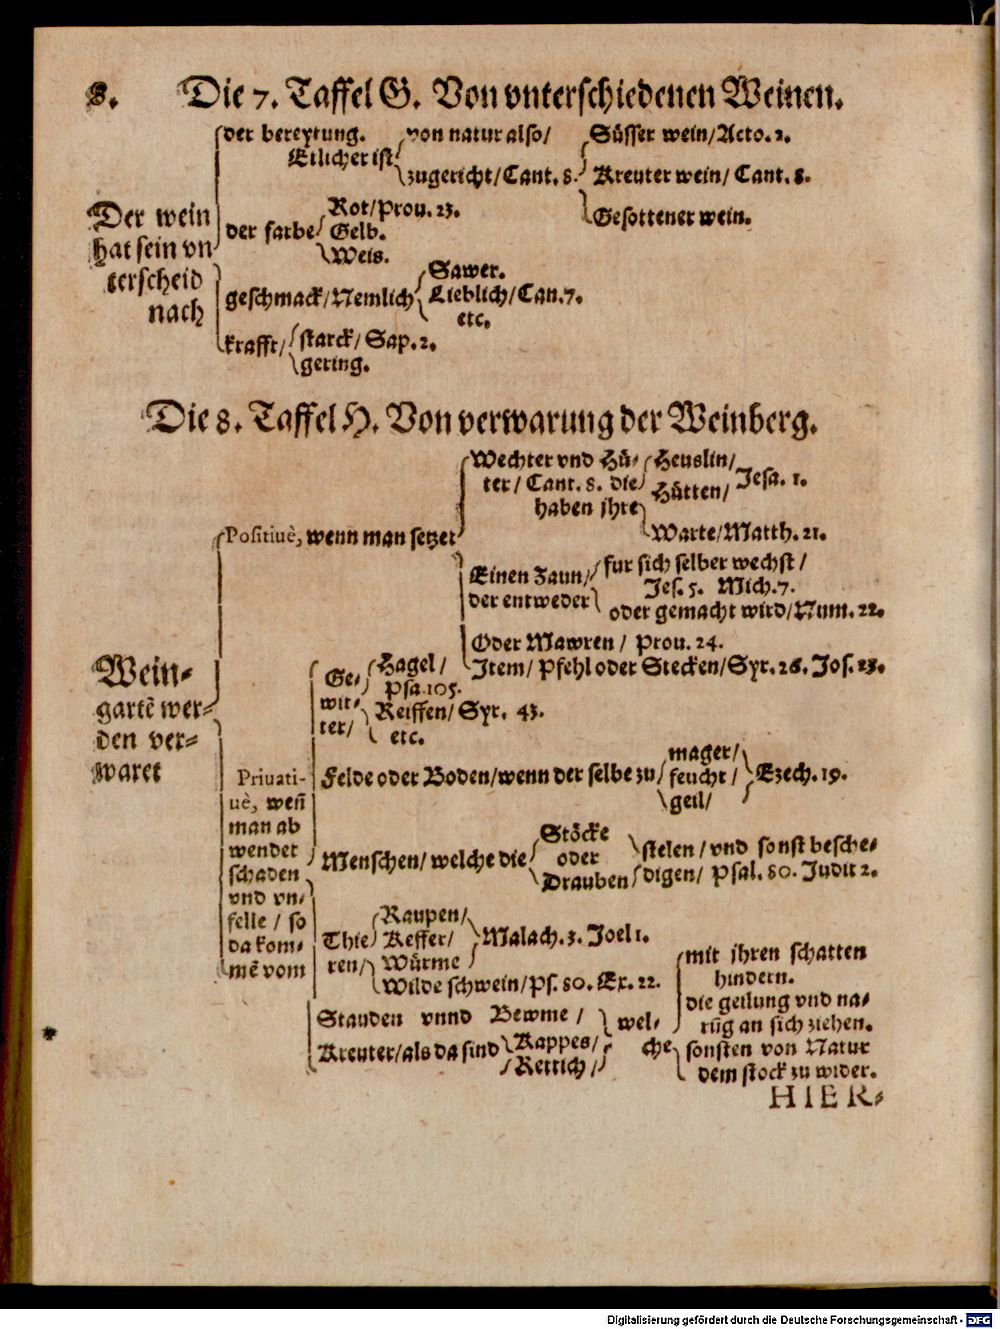 8. Die 7. Taffel G. Von vnterschiedenen Weinen.
Der wein
hat sein vn
terscheid
nach
der bereytung.
Etlicher ist
von natur also/
zugericht/Cant. 8.
Süsser wein/Acto. 2.
Kreuter wein/ Cant. 8.
Gesottener wein.
der farbe
Rot/Prou. 23.
Gelb.
Weis.
geschmack/Nemlich
Sawer.
Lieblich/Can.7.
etc.
krafft/
starck/ Sap. 2.
gering.
Die 8. Taffel H. Von verwarung der Weinberg.
Wein-
gartē wer-
den ver-
waret
Positiuè, wenn man setzet
Wechter vnd Hü-
ter/ Cant. 8. die
haben jhre
Heuslin/
Hütten/
Jesa. 1.
Warte/Matth. 21.
Einen Zaun/
der entweder
fur sich selber wechst /
Jes. 5. Mich.7.
oder gemacht wird/Num. 22.
Oder Mawren / Prou. 24.
Item/ Pfehl oder Stecken/Syr. 26. Jos. 23.
Priuati-
uè, wen̄
man ab
wendet
schaden
vnd vn-
felle / so
da kom-
mē vom
Ge-
wit-
ter/
Hagel /
Psa.105.
Reiffen/ Syr. 43.
etc.
Felde oder Boden/wenn der selbe zu
mager/
feucht /
geil/
Ezech. 19.
Menschen/ welche die
Stöcke
oder
Drauben
stelen / vnd sonst besche-
digen/ Psal. 80. Judit 2.
Thie
ren/
Raupen/
Keffer/
Würme
Malach. 3. Joel 1.
Wilde schwein/Ps. 80. Ex. 22.
Stauden vnnd Bewme /
Kreuter/als da sind
Kappes/
Rettich /
wel-
che
mit jhren schatten
hindern.
die geilung vnd na-
rūg an sich ziehen.
sonsten von Natur
dem stock zu wider.
HIER-
Digitalisierung gefördert durch die Deutsche Forschungsgemeinschaft - DFG